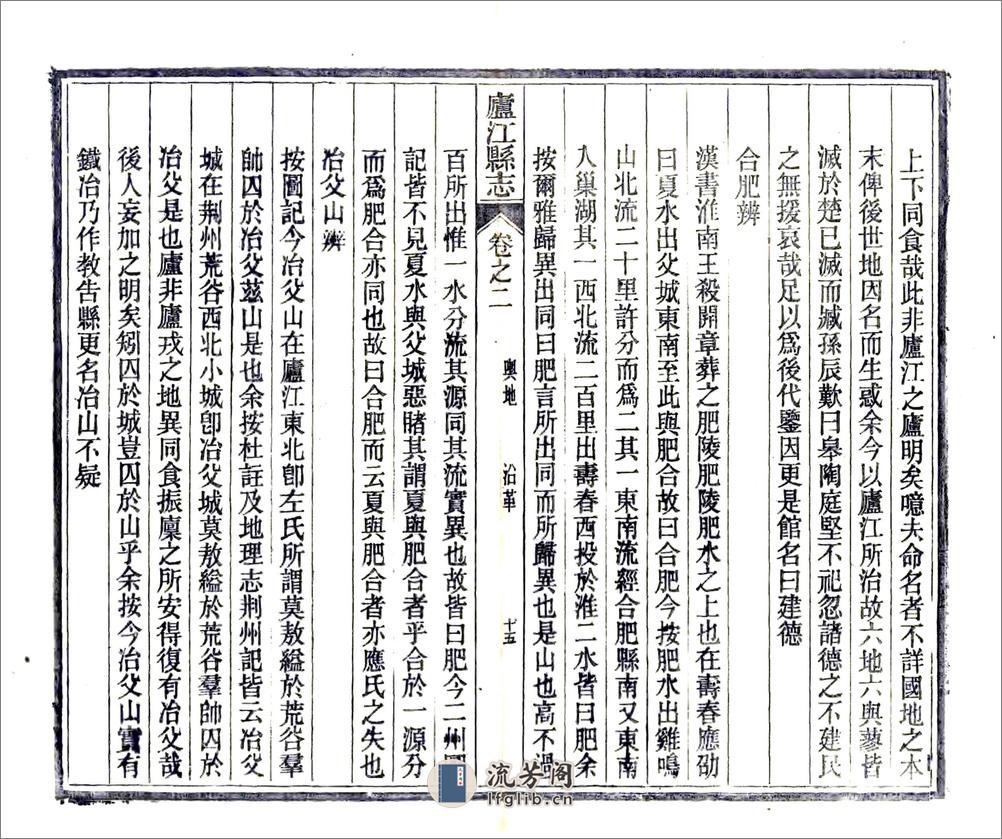 上下同食哉此非廬江之廬明矣噫夫命名者不詳國地之本
末俾後世地因名而生惑余今以廬江所治故六地六與蓼皆
滅於楚已滅而臧孫辰歎曰皋陶庭堅不祀忽諸德之不建民
之無援哀哉足以為後代鑒因更是館名曰建德
合肥辨
漢書淮南王殺開章葬之肥陵肥陵肥水之上也在壽春應劭
曰夏水出父城東南至此與肥合故曰合肥今按肥水出雞鳴
山北流二十里許分而為二其一東南流經合肥縣南又東南
入巢湖其一西北流二百里出壽春西投於淮二水皆曰肥余
按爾雅歸異出同曰肥言所出同而所歸異也是山也高不過
廬江縣志
卷之二
輿地
沿革
十五
百所出惟一水分流其源同其流實異也故皆曰肥今二州圖
記皆不見夏水與父城惡睹其謂夏與肥合者乎合於一源分
而爲肥合亦同也故曰合肥而云夏與肥合者亦應氏之失也
冶父山辨
按圖記今冶父山在廬江東北卽左氏所謂莫敖縊於荒谷羣
帥囚於冶父茲山是也余按杜註及地理志荆州記皆云冶父
城在荆州荒谷西北小城卽冶父城莫敖縊於荒谷羣帥囚於
冶父是也廬非廬戎之地異同食振廩之所安得復有冶父哉
後人妄加之明矣矧囚於城豈囚於山乎余按今冶父山實有
鐵冶乃作教告縣更名冶山不疑
流芳閣
lfglib.cn